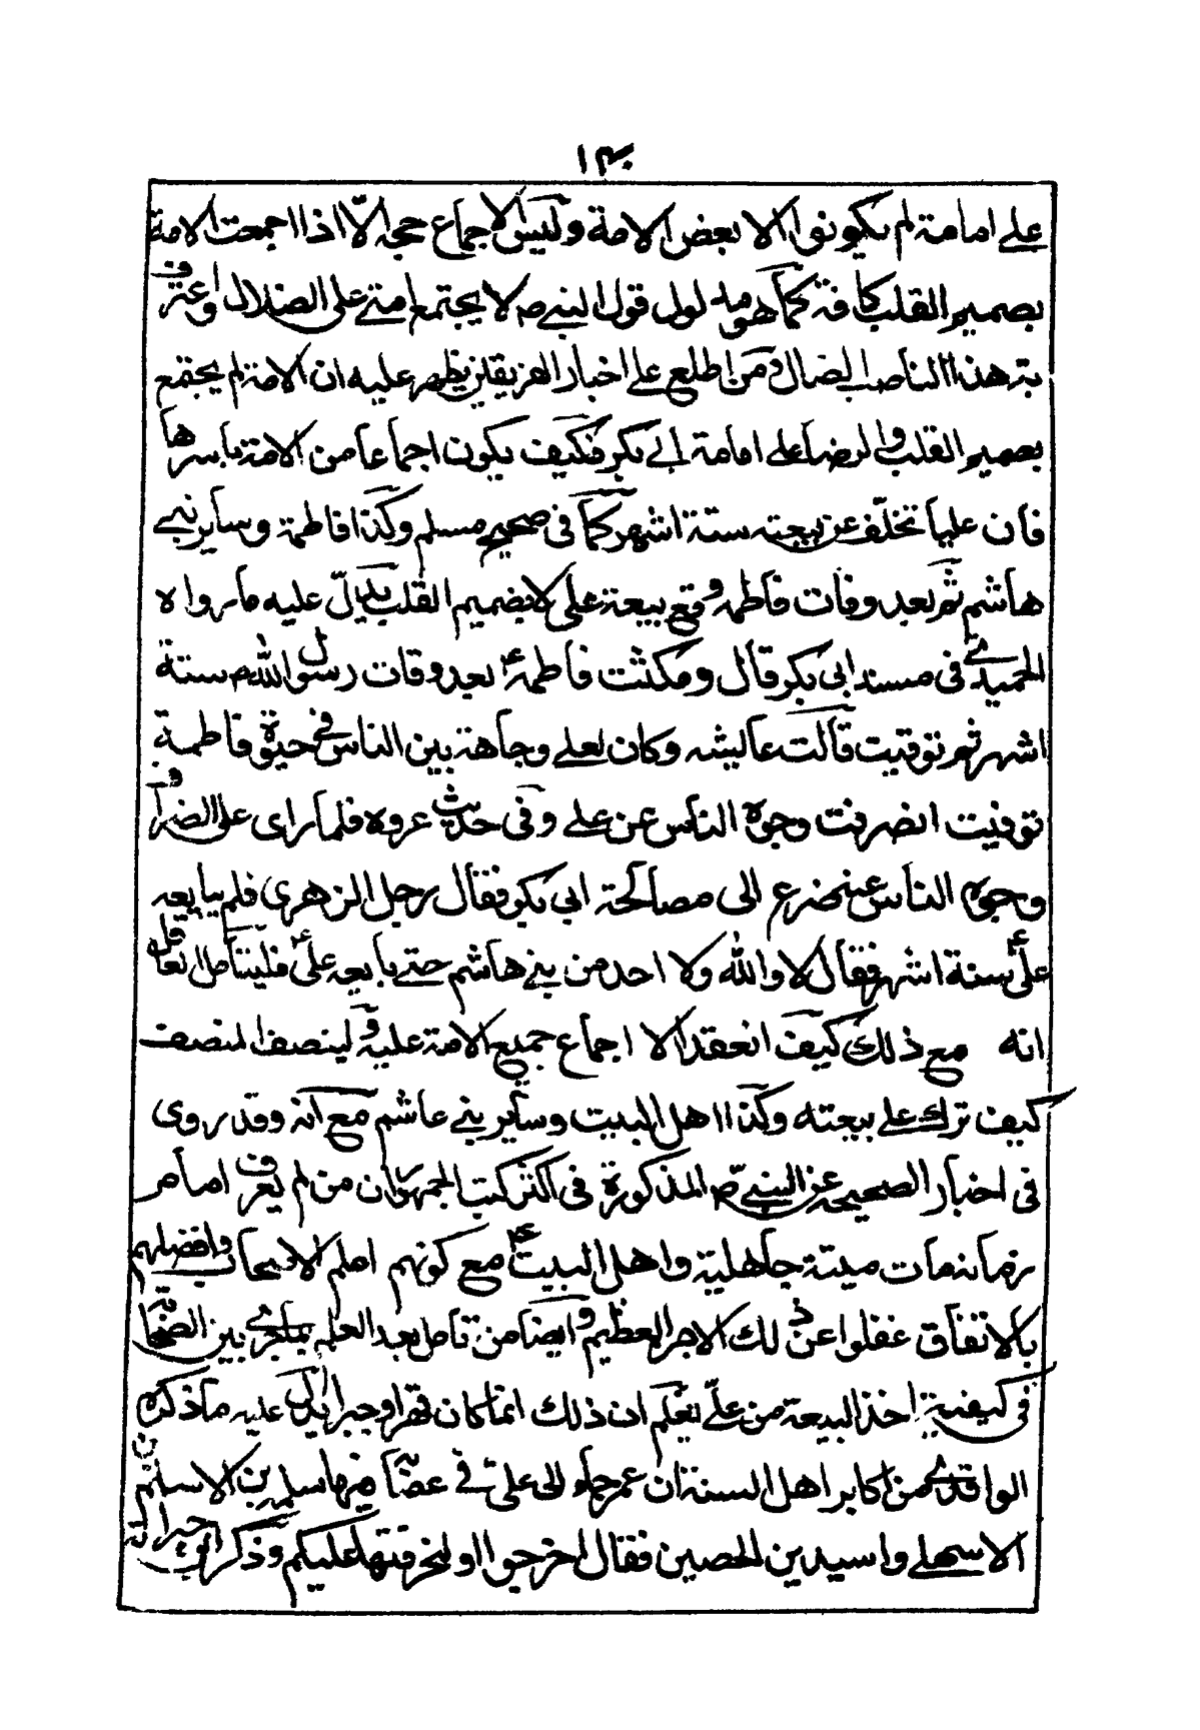 ١٣٠
على امامته لم يكونوا الا بعض الامة وليس الاجماع حجة الّا اذا اجمعت الامة
بصميم القلب كافة كما هو مدلول قول النبي ص لا يجتمع امتي على الضلال واعترف
به هذا الناصب الضال ومن اطلع على اخبار الفريقين يظهر عليه ان الامة لم يجتمع
بصميم القلب والرضا على امامة ابي بكر فكيف يكون اجماعا من الامة باسرها
فان عليا تخلّف عن بيعته ستة اشهر كما في صحيح مسلم وكذا فاطمة وساير بني
هاشم ثم بعد وفات فاطمه وقع بيعة على لا بصميم القلب يدلّ عليه ما رواه
الحميدي في مسند ابي بكر قال ومكثت فاطمة ع بعد وفات رسول الله ص ستة
اشهر ثم توفيت قالت عايشه وكان لعلي وجاهة بين الناس في حيوة فاطمة
توفيت انصرفت وجوه الناس عن على وفي حديث عروه فلما راى على انصراف
وجوه الناس عنه ضرع الى مصالحة ابي بكر فقال رجل الزهرى فلم يبايعه
علي ع ستة اشهر فقال لا والله ولا احد من بني هاشم حتى بايعه علي ع فليتأمل العاقل
انه مع ذلك كيف انعقد الا اجماع جميع الامة عليه ولينصف المنصف
كيف ترك على بيعته وكذا اهل البيت وساير بني هاشم مع انه وقد روى
في اخبار الصحيحه عن النبي ص المذكورة في اكثر كتب الجمهور ان من لم يعرف امام
زمانه مات ميتة جاهلية واهل البيت ع مع كونهم اعلم الاصحاب وافضلهم
بالاتفاق غفلوا عن ذلك الامر العظيم وايضا من تامل بعد العلم بما جرى بين الصحابة
في كيفية اخذ البيعة من علىّ يعلم ان ذلك انما كان قهرا وجبرا يدل عليه ما ذكره
الواقدي من اكابر اهل السنة ان عمر جاء الى على في عصابة منها سلمة بن الاسلم
الاسهلي واسيد بن الحصين فقال اخرجوا او لنحرقنها عليكم وذكر